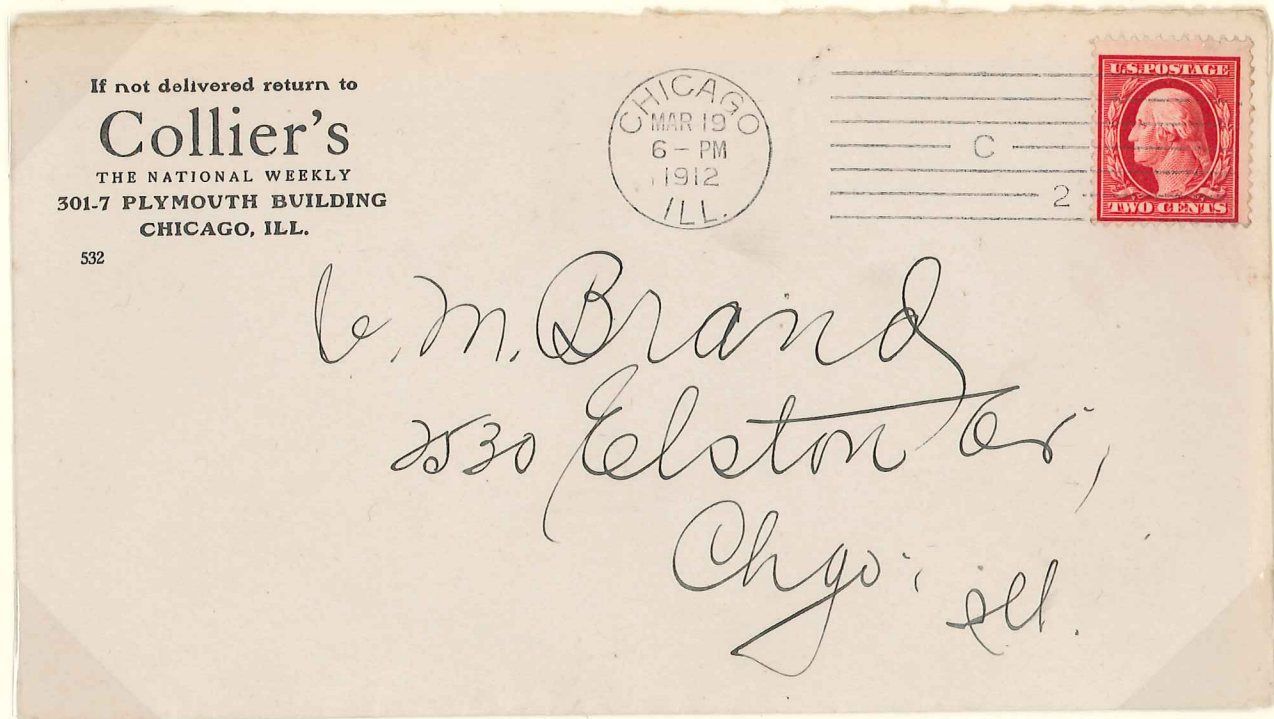 If not delivered return to
Collier's
THE NATIONAL WEEKLY
301-7 PLYMOUTH BUILDING
CHICAGO, ILL.
532
CHICAGO
MAR 19
6 - PM
1912
ILL.
C
2
U.S. POSTAGE
TWO CENTS
C. M. Brand
2530 Elston Av,
Chgo, Ill.